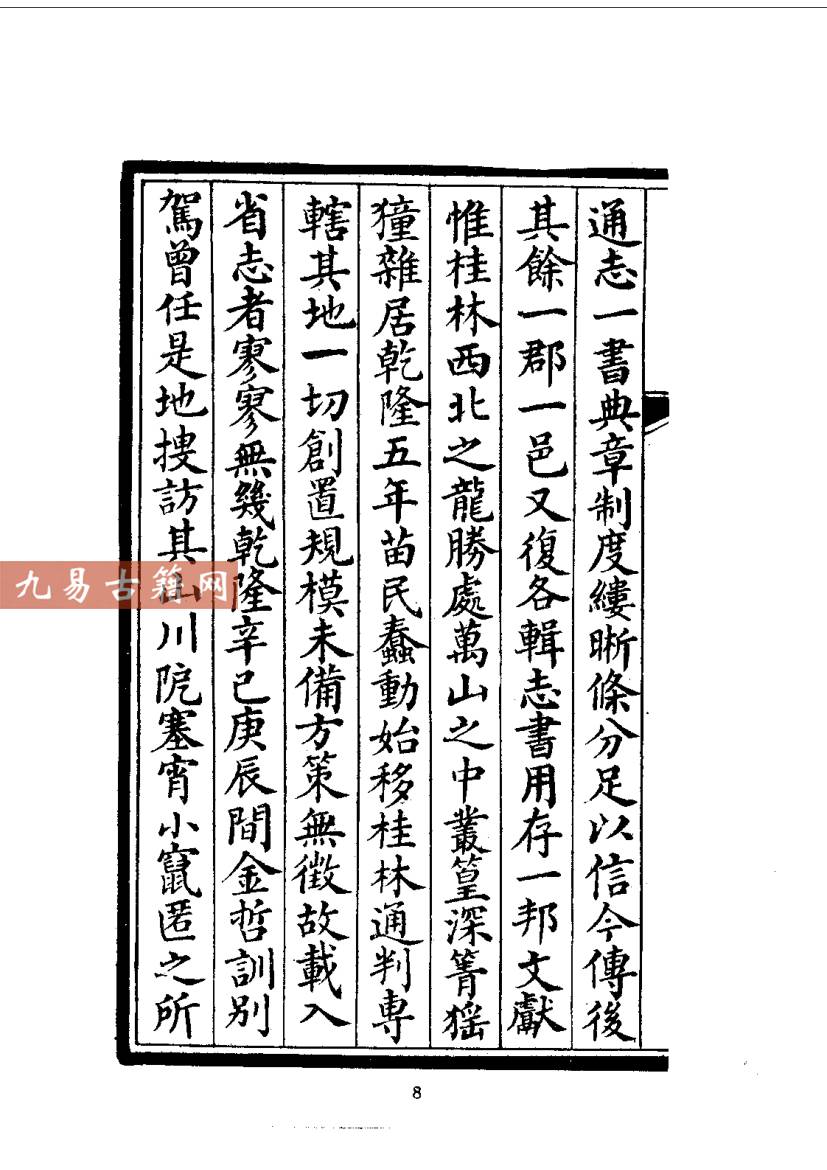 通志一書典章制度縷晰條分足以信今傳後
其餘一郡一邑又復各輯志書用存一邦文獻
惟桂林西北之龍勝處萬山之中叢篁深箐猺
獞雜居乾隆五年苗民蠢動始移桂林通判専
轄其地一切創置規模未備方策無徵故載入
省志者寥寥無幾乾隆辛巳庚辰間金哲訓別
駕曾任是地搜訪其山川阨塞宵小竄匿之所
九易古籍网
8